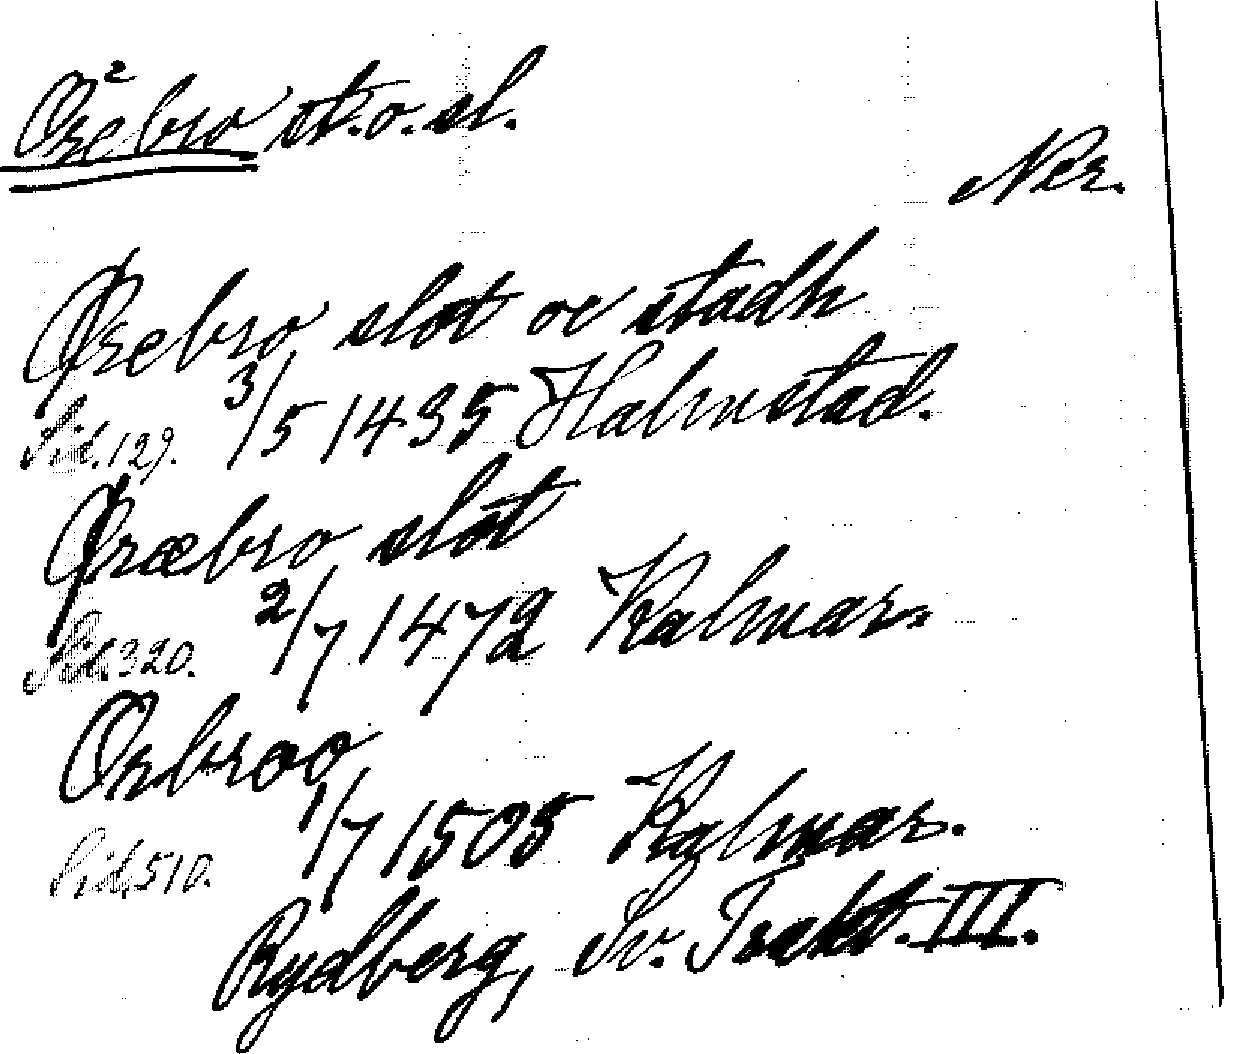 Örebro² st. o. sl.
Ner.
Ørebro slot oc stadh
Sid. 129. 3/5 1435 Halmstad.
Ørœbro slot
Sid. 320. 2/7 1472 Kalmar.
Örbroo
Sid. 510. 1/7 1505 Kalmar.
Rydberg, Sv. Trakt. III.